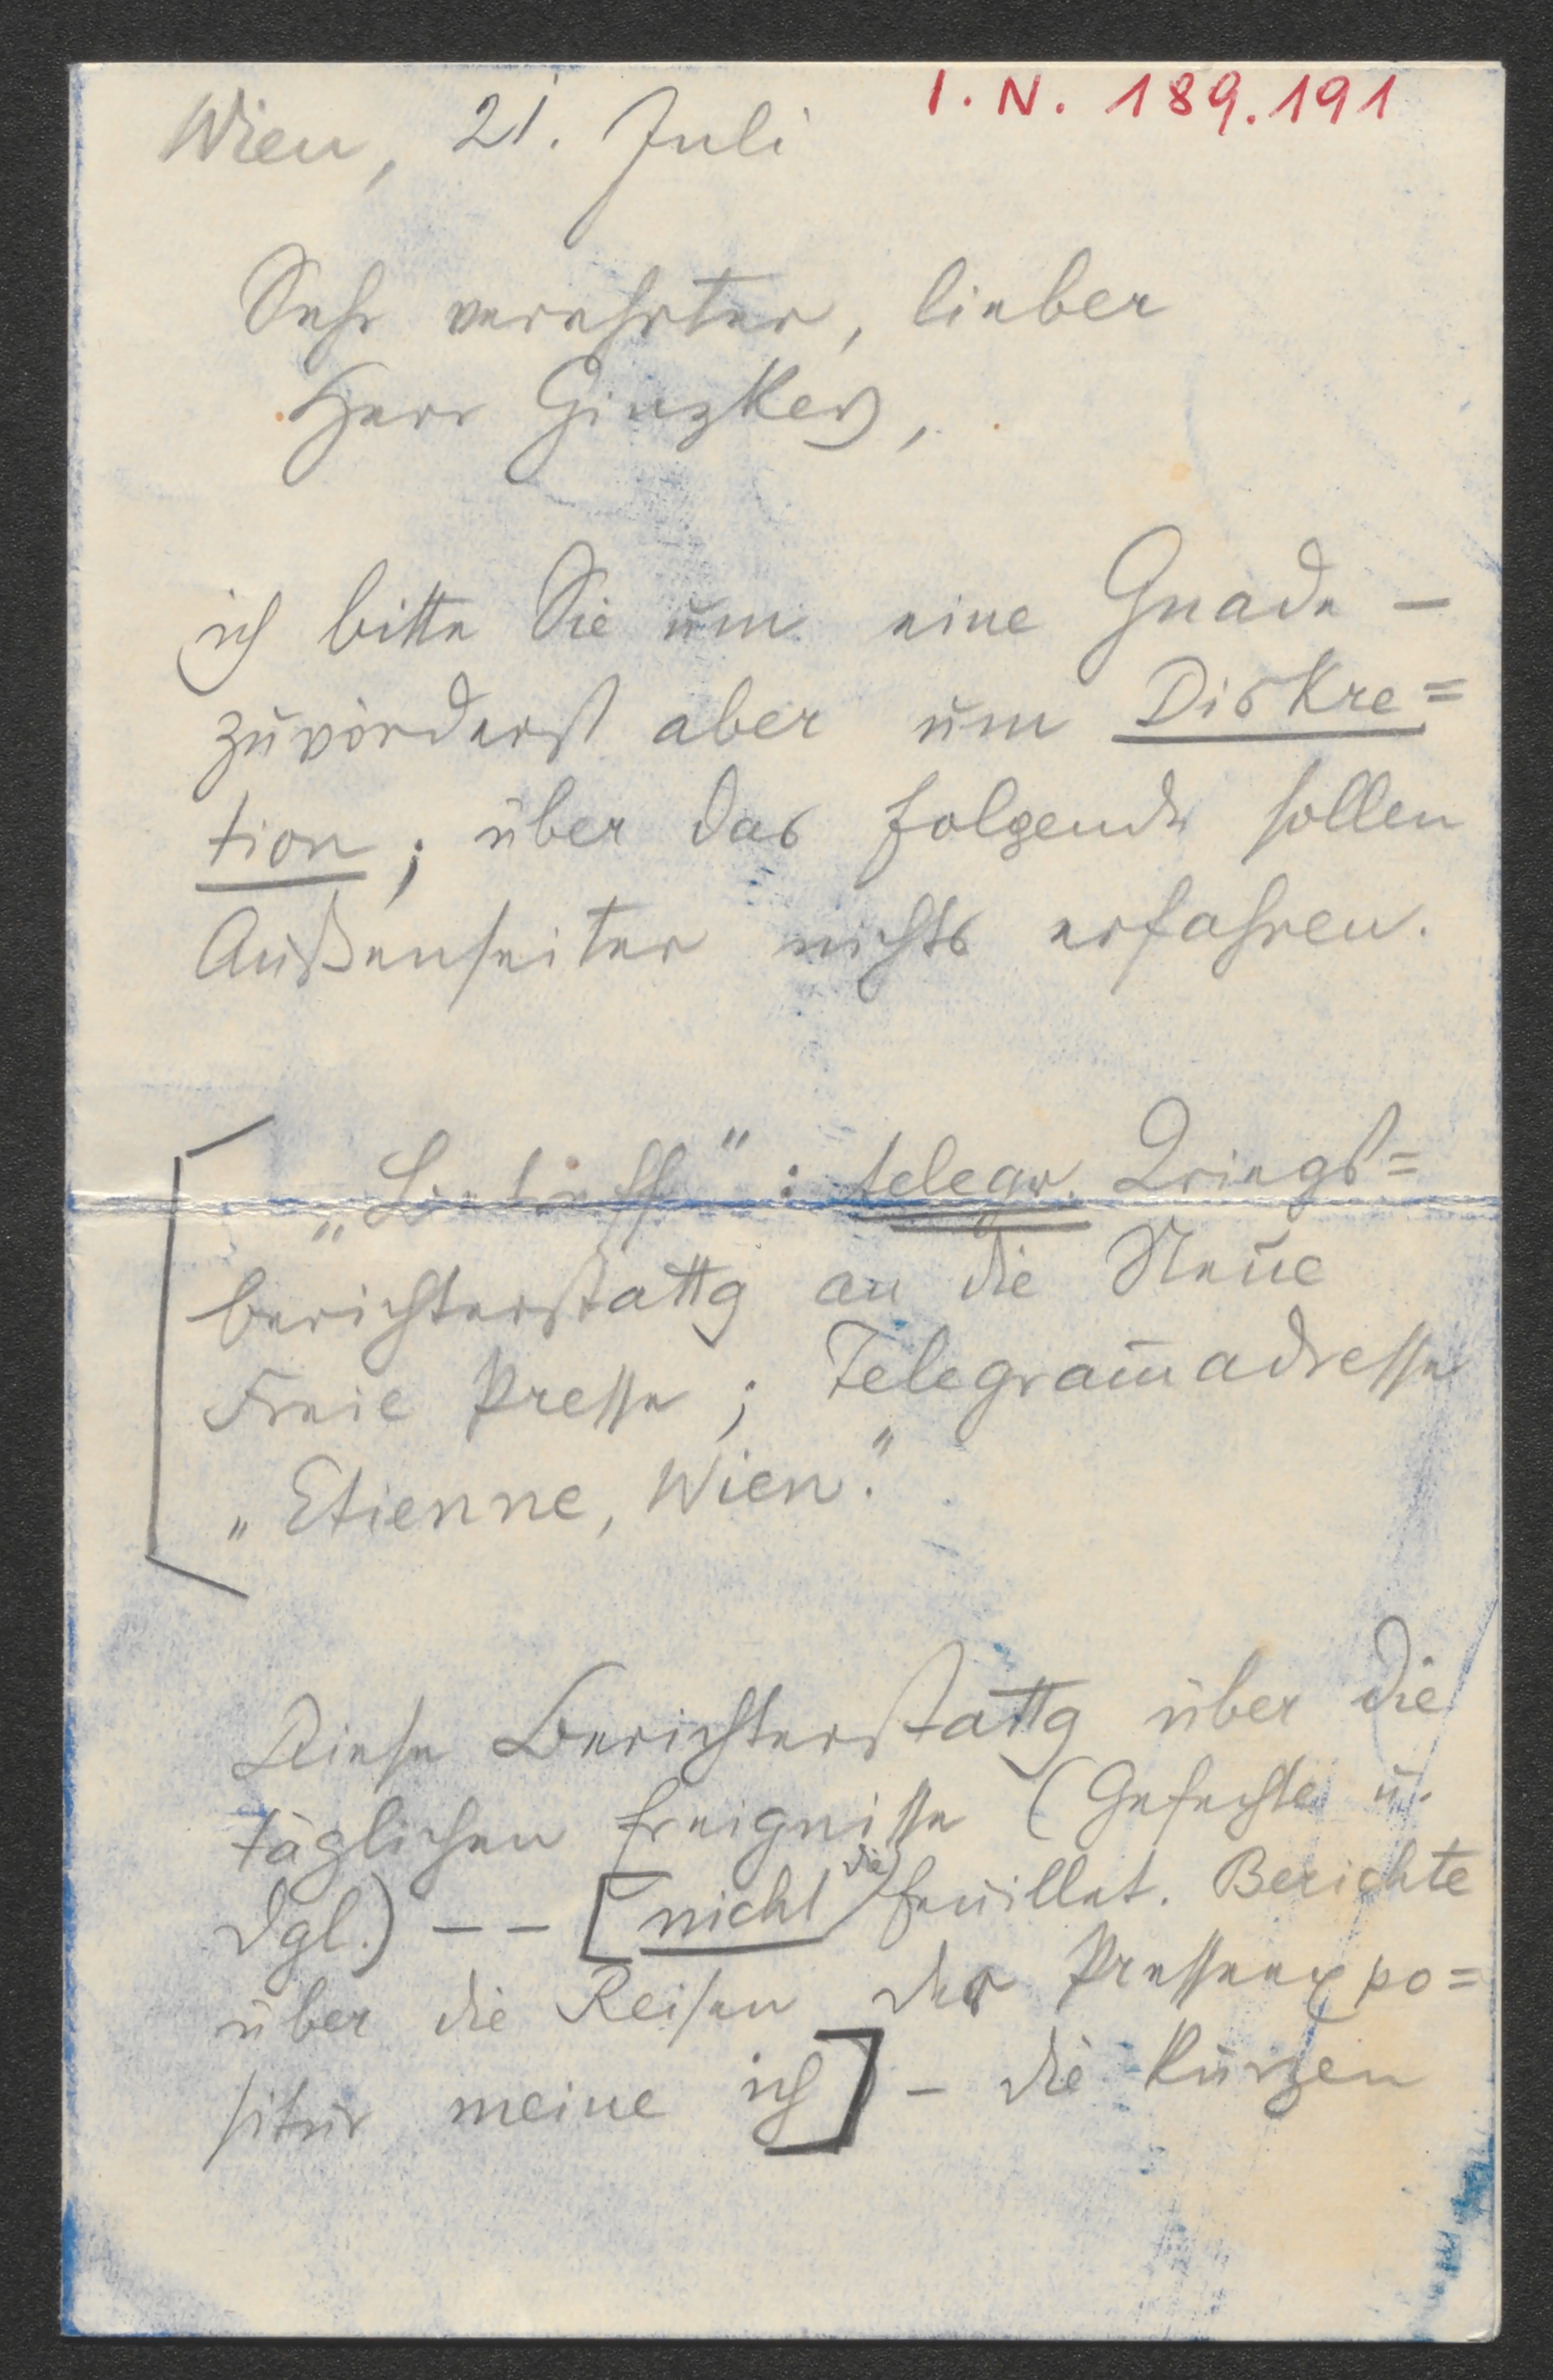 I. N. 189.191
Wien, 21. Juli
Sehr verehrter, lieber
Herr Ginzkey,
ich bitte Sie um eine Gnade –
zuvörderst aber um Diskre=
tion; über das folgende sollen
Außenseiter nichts erfahren.
„Betreff“: telegr. Kriegs=
berichterstattg an die Neue
Freie Presse; Telegram̅adresse
„Etienne, Wien.“
Diese Berichterstattg über die
täglichen Ereignisse (Gefechte u.
dgl.) – – [nicht die feuillet. Berichte
über die Reisen der Presseexpo=
situr meine ich] – die kurzen